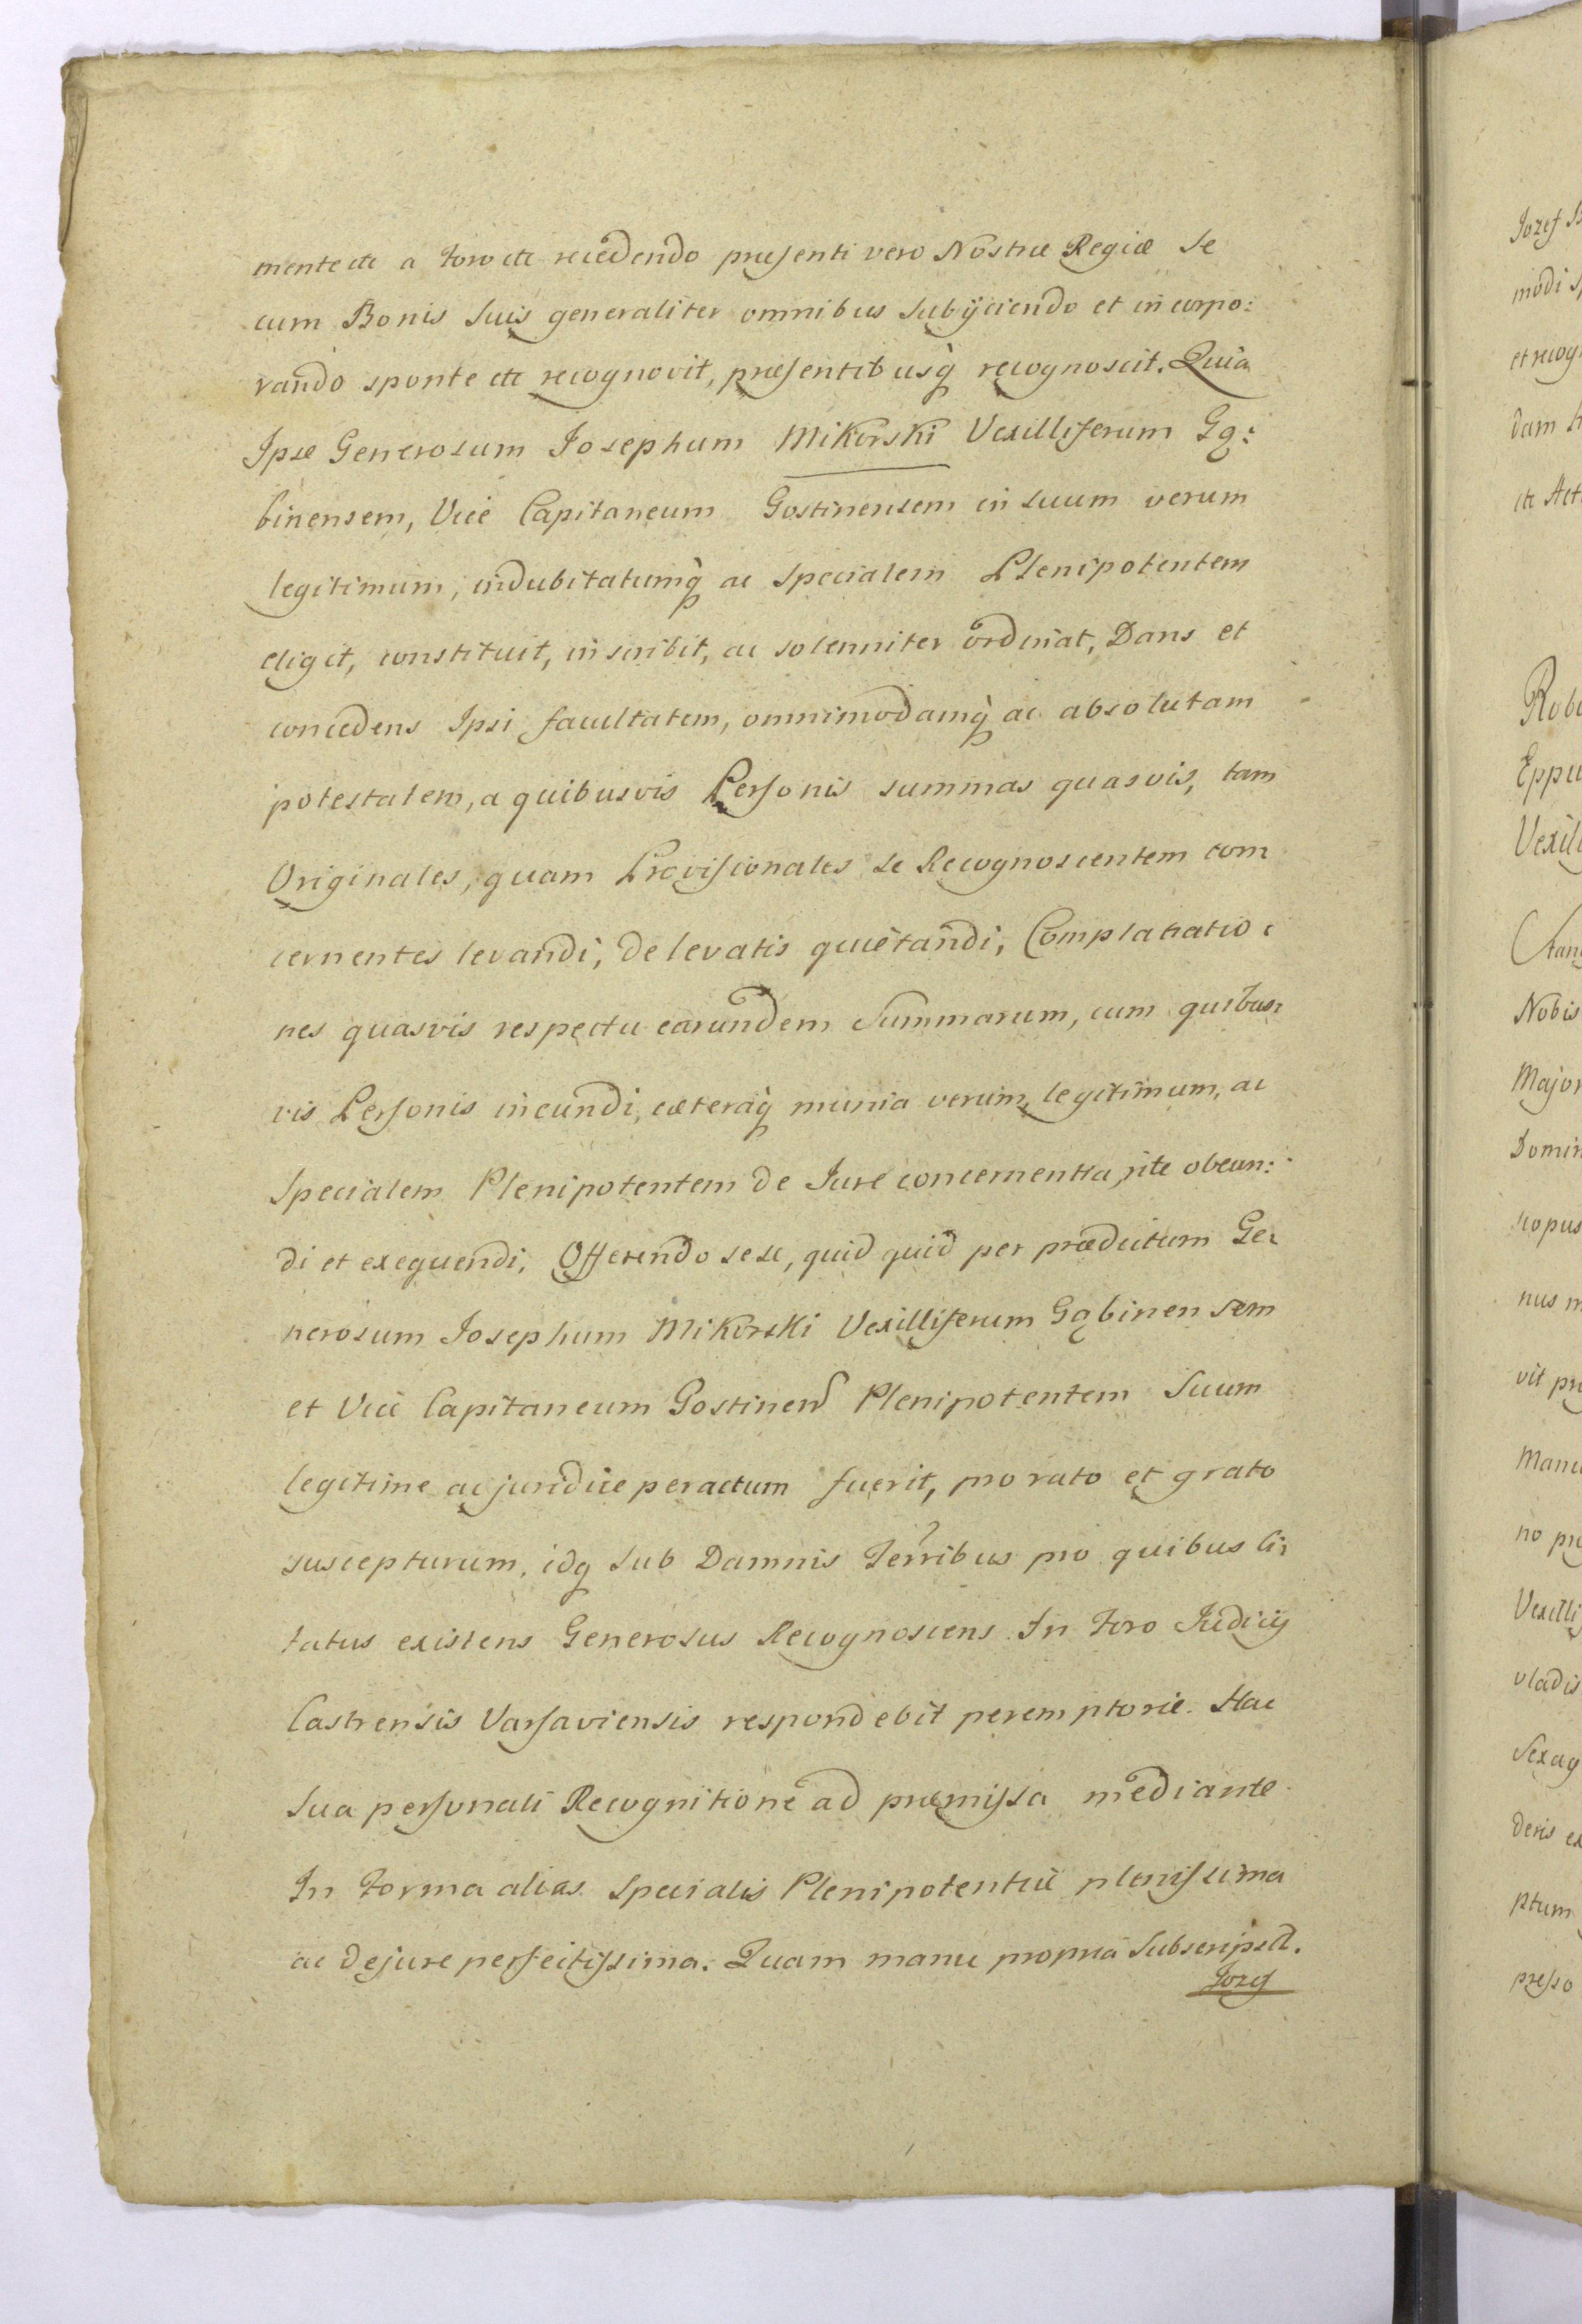 mente etc a Foro etc recedendo præsenti vero Nostræ Regiæ se
cum Bonis Suis generaliter omnibus Subijciendo et incorpo:
rando sponte etc recognovit, præsentibusq̀ recognoscit. Quia
Ipse Generosum Josephum Mikorski Vexilliferum Gą:
binensem, Vice Capitaneum Gostinensem in suum verum
legitimum, indubitatumq̀ ac specialem Plenipotentem
eligit, constituit, inscribit, ac solenniter ordinat, Dans et
concedens Ipsi facultatem, omnimodamq̀ ac absolutam
potestatem, a quibusvis Personis summas quasvis, tam
Originales, quam Provisionales se Recognoscentem con:
cernentes levandi, de levatis quietandi, Complanatio:
nes quasvis respectu earundem Summarum, cum quibus:
vis Personis ineundi, cæteraq̀ munia verum, legitimum, ac
Specialem Plenipotentem de Jure concernentia, rite obeun:
di et exequendi, Offerendo sese, quid quid per prædictum Ge:
nerosum Josephum Mikorski Vexilliferum Gąbinensem
et Vice Capitaneum Gostinens Plenipotentem Suum
legitime ac juridice peractum fuerit, pro rato et grato
suscepturum, idq sub Damnis Terribus pro quibus ci:
tatus existens Generosus Recognoscens In Foro Judicij
Castrensis Varsaviensis respondebit peremptorie. Hac
Sua personali Recognitione ad præmissa mediante
In Forma alias Specialis Plenipotentiæ plenissima
ac de jure perfectissima. Quam manu propria Subscripsit.
Jozef